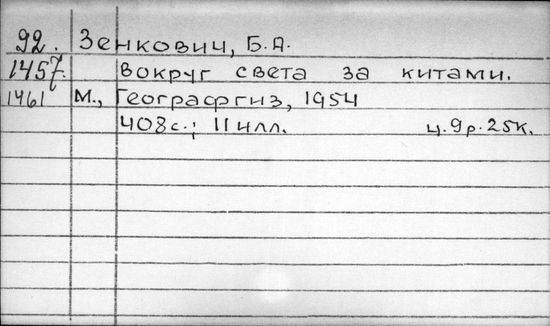 92. Зенкович, Б.А.
1457. Вокруг света за китами.
1461 М., Географгиз, 1954
408с.; 11 илл. ц. 9р. 25к.